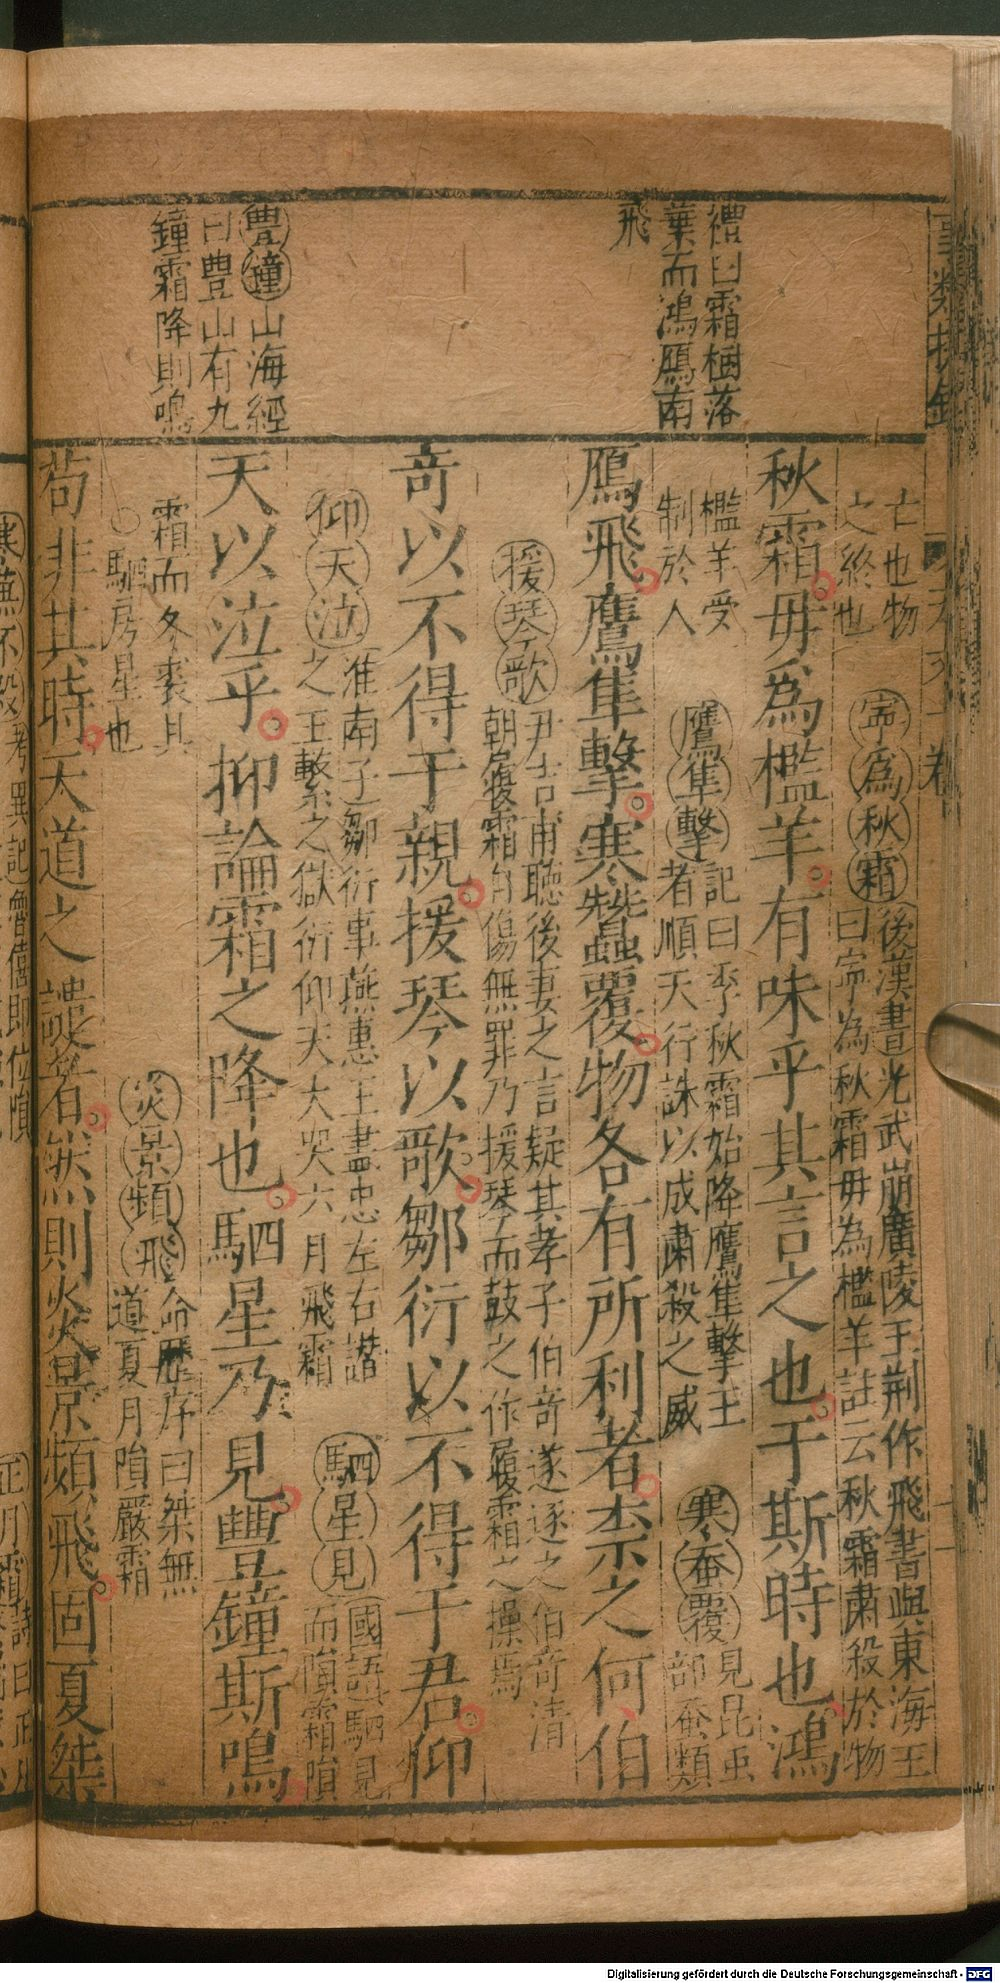 禮曰霜梱落
葉而鴻鴈南
飛
豊鐘山海經
曰豊山有九
鐘霜降則鳴
亡也物
之終也
寧爲秋霜後漢書光武崩廣陵王荆作飛書與東海王
曰寜為秋霜毋為檻羊註云秋霜肅殺於物
秋霜毋爲檻羊有味乎其言之也于斯時也鴻
檻羊受
制於人
鷹隼擊記曰季秋霜始降鷹隼擊王
者順天行誅以成肅殺之威
寒蚕覆見昆虫
部蚕類
鴈飛鷹隼擊寒蠶覆物各有所利者柰之何伯
援琴歌尹吉甫聴後妻之言疑其孝子伯奇遂逐之伯奇清
朝履霜自傷無罪乃援琴而鼓之作履霜之操焉
奇以不得于親援琴以歌鄒衍以不得于君仰
仰天泣淮南子鄒衍事燕惠王盡忠左右譖
之王繫之獄衍仰天大哭六月飛霜
駟星見國語駟見
而隕霜隕
天以泣乎抑論霜之降也駟星乃見豊鐘斯鳴
霜而冬裘具
○駟房星也
炎景頻飛命歷序曰桀無
道夏月隕嚴霜
苟非其時天道之謨者然則炎景頻飛固夏桀
Digitalisierung gefördert durch die Deutsche Forschungsgemeinschaft - DFG